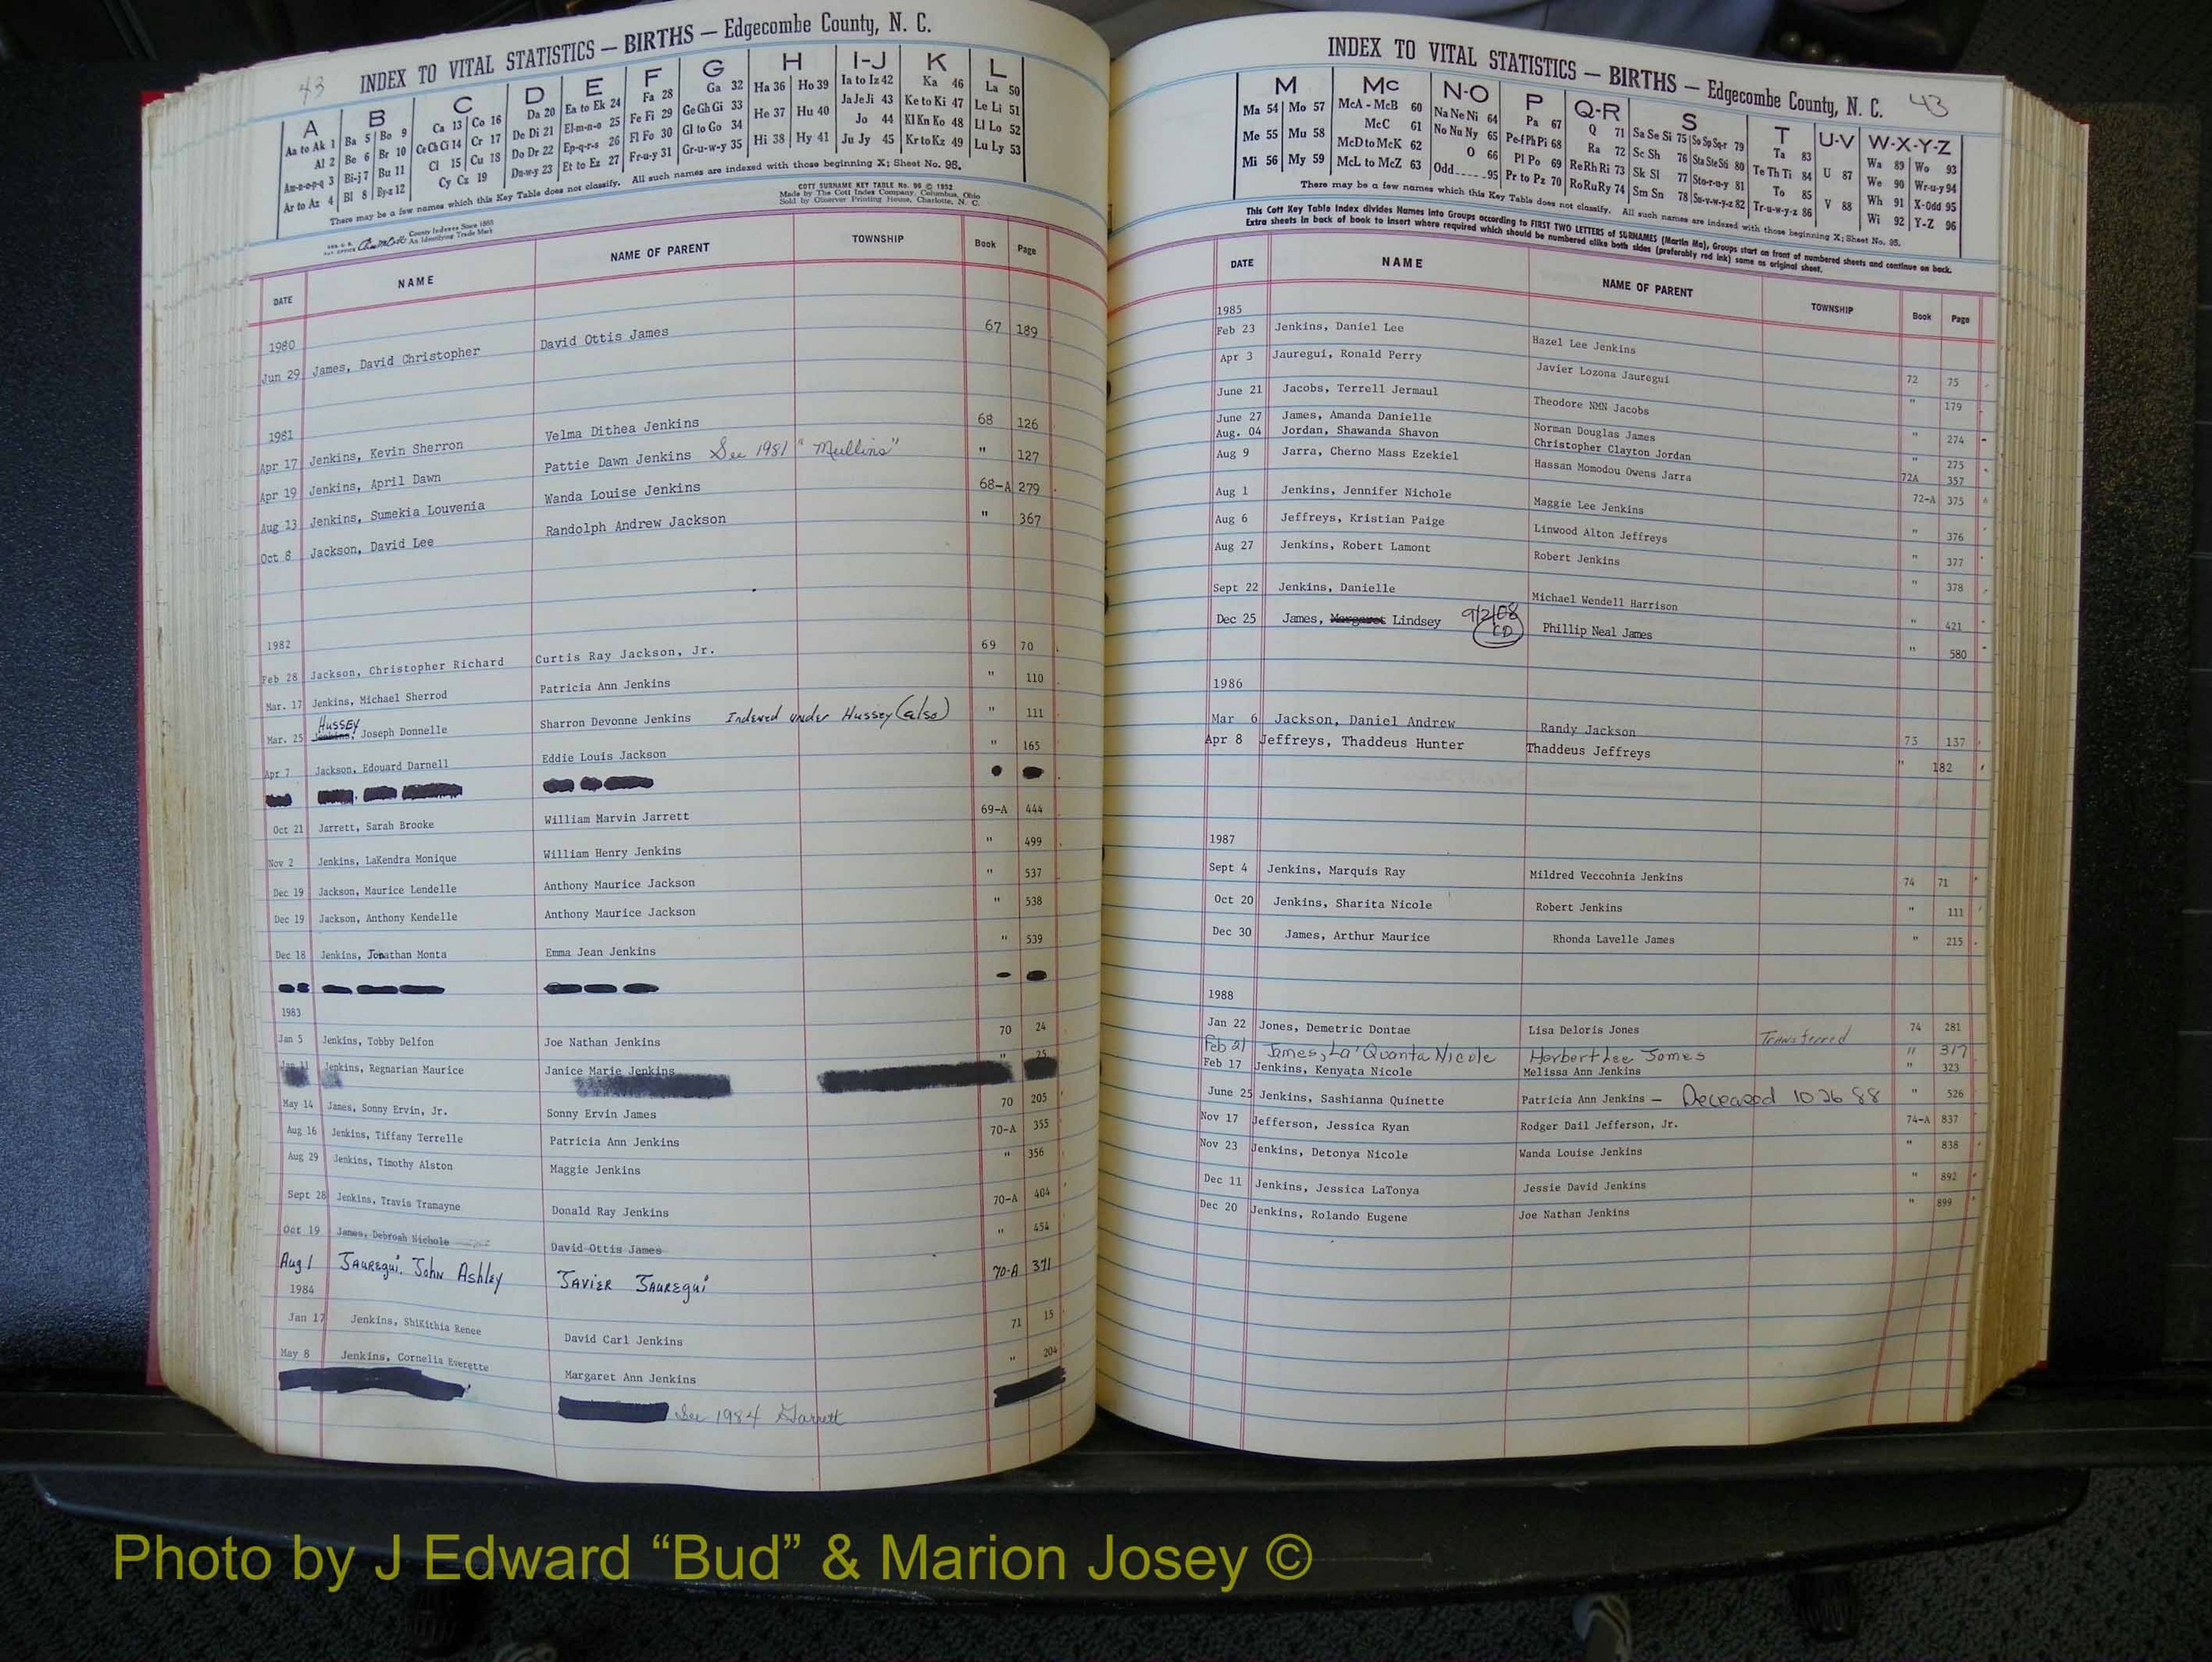 43
INDEX TO VITAL STATISTICS — BIRTHS — Edgecombe County, N. C.
A B C D E F G H I-J K L
Aa to Ak 1 Ba 5 Bo 9 Ca 13 Co 16 Da 20 Ea to Ek 24 Fa 28 Ga 32 Ha 36 Ho 39 Ia to Iz 42 Ka 46 La 50
Al 2 Be 6 Br 10 Ce Ch Ci 14 Cr 17 De Di 21 El-m-n-o 25 Fe Fi 29 Ge Gh Gi 33 He 37 Hu 40 Ja Je Ji 43 Ke to Ki 47 Le Li 51
Am-n-o-p-q 3 Bi-j 7 Bu 11 Cl 15 Cu 18 Do Dr 22 Ep-q-r-s 26 Fl Fo 30 Gl to Go 34 Hi 38 Hy 41 Jo 44 Kl Kn Ko 48 Ll Lo 52
Ar to Az 4 Bl 8 By-z 12 Cy Cz 19 Du-w-y 23 Et to Ez 27 Fr-u-y 31 Gr-u-w-y 35 Ju Jy 45 Kr to Kz 49 Lu Ly 53
There may be a few names which this Key Table does not classify. All such names are indexed with those beginning X; Sheet No. 95.
COTT SURNAME KEY TABLE No. 96 © 1952
Made by The Cott Index Company, Columbus, Ohio
Sold by Observer Printing House, Charlotte, N. C.
County Indexes Since 1888
An Identifying Trade Mark
DATE NAME NAME OF PARENT TOWNSHIP Book Page
1980
Jun 29 James, David Christopher David Ottis James 67 189
1981
Apr 17 Jenkins, Kevin Sherron Velma Dithea Jenkins 68 126
Apr 19 Jenkins, April Dawn Pattie Dawn Jenkins See 1981 "Mullins" " 127
Aug 13 Jenkins, Sumekia Louvenia Wanda Louise Jenkins 68-A 279
Oct 8 Jackson, David Lee Randolph Andrew Jackson " 367
1982
Feb 28 Jackson, Christopher Richard Curtis Ray Jackson, Jr. 69 70
Mar. 17 Jenkins, Michael Sherrod Patricia Ann Jenkins " 110
Hussey
Mar. 25 Jenkins, Joseph Donnelle Sharron Devonne Jenkins Indexed under Hussey (also) " 111
Apr 7 Jackson, Edouard Darnell Eddie Louis Jackson " 165
Oct 21 Jarrett, Sarah Brooke William Marvin Jarrett 69-A 444
Nov 2 Jenkins, LaKendra Monique William Henry Jenkins " 499
Dec 19 Jackson, Maurice Lendelle Anthony Maurice Jackson " 537
Dec 19 Jackson, Anthony Kendelle Anthony Maurice Jackson " 538
Dec 18 Jenkins, Jonathan Monta Emma Jean Jenkins " 539
1983
Jan 5 Jenkins, Tobby Delfon Joe Nathan Jenkins 70 24
Jan 11 Jenkins, Regnarian Maurice Janice Marie Jenkins " 25
May 14 James, Sonny Ervin, Jr. Sonny Ervin James 70 205
Aug 16 Jenkins, Tiffany Terrelle Patricia Ann Jenkins 70-A 355
Aug 29 Jenkins, Timothy Alston Maggie Jenkins " 356
Sept 28 Jenkins, Travis Tramayne Donald Ray Jenkins 70-A 404
Oct 19 James, Debroah Nichole David Ottis James " 454
Aug 1 Jauregui, John Ashley Javier Jauregui 70-A 371
1984
Jan 17 Jenkins, ShiKithia Renee David Carl Jenkins 71 15
May 8 Jenkins, Cornelia Everette Margaret Ann Jenkins " 204
See 1984 Garrett
INDEX TO VITAL STATISTICS — BIRTHS — Edgecombe County, N. C. 43
M Mc N-O P Q-R S T U-V W-X-Y-Z
Ma 54 Mo 57 McA - McB 60 Na Ne Ni 64 Pa 67 Q 71 Sa Se Si 75 So Sp Sq-r 79 Ta 83 U 87 Wa 89 Wo 93
Me 55 Mu 58 McC 61 No Nu Ny 65 Pe-f Ph Pi 68 Ra 72 Sc Sh 76 Sta Ste Sti 80 Te Th Ti 84 We 90 Wr-u-y 94
Mi 56 My 59 McD to McK 62 O 66 Pl Po 69 Re Rh Ri 73 Sk Sl 77 Sto-r-u-y 81 To 85 V 88 Wh 91 X-Odd 95
McL to McZ 63 Odd 95 Pr to Pz 70 Ro Ru Ry 74 Sm Sn 78 Su-v-w-y-z 82 Tr-u-w-y-z 86 Wi 92 Y-Z 96
There may be a few names which this Key Table does not classify. All such names are indexed with those beginning X; Sheet No. 95.
This Cott Key Table Index divides Names into Groups according to FIRST TWO LETTERS of SURNAMES (Martin Ma), Groups start on front of numbered sheets and continue on back.
Extra sheets in back of book to insert where required which should be numbered alike both sides (preferably red ink) same as original sheet.
DATE NAME NAME OF PARENT TOWNSHIP Book Page
1985
Feb 23 Jenkins, Daniel Lee Hazel Lee Jenkins 72 75
Apr 3 Jauregui, Ronald Perry Javier Lozona Jauregui " 179
June 21 Jacobs, Terrell Jermaul Theodore NMN Jacobs " 274
June 27 James, Amanda Danielle Norman Douglas James " 275
Aug. 04 Jordan, Shawanda Shavon Christopher Clayton Jordan 72A 357
Aug 9 Jarra, Cherno Mass Ezekiel Hassan Momodou Owens Jarra 72-A 375
Aug 1 Jenkins, Jennifer Nichole Maggie Lee Jenkins " 376
Aug 6 Jeffreys, Kristian Paige Linwood Alton Jeffreys " 377
Aug 27 Jenkins, Robert Lamont Robert Jenkins " 378
Sept 22 Jenkins, Danielle Michael Wendell Harrison " 421
Dec 25 James, Margaret Lindsey 9/2/08 CD Phillip Neal James " 580
1986
Mar 6 Jackson, Daniel Andrew Randy Jackson 73 137
Apr 8 Jeffreys, Thaddeus Hunter Thaddeus Jeffreys " 182
1987
Sept 4 Jenkins, Marquis Ray Mildred Veccohnia Jenkins 74 71
Oct 20 Jenkins, Sharita Nicole Robert Jenkins " 111
Dec 30 James, Arthur Maurice Rhonda Lavelle James " 215
1988
Jan 22 Jones, Demetric Dontae Lisa Deloris Jones Transferred 74 281
Feb 21 James, La'Quanta Nicole Herbert Lee James " 317
Feb 17 Jenkins, Kenyata Nicole Melissa Ann Jenkins " 323
June 25 Jenkins, Sashianna Quinette Patricia Ann Jenkins — Deceased 10 26 88 " 526
Nov 17 Jefferson, Jessica Ryan Rodger Dail Jefferson, Jr. 74-A 837
Nov 23 Jenkins, Detonya Nicole Wanda Louise Jenkins " 838
Dec 11 Jenkins, Jessica LaTonya Jessie David Jenkins " 892
Dec 20 Jenkins, Rolando Eugene Joe Nathan Jenkins " 899
Photo by J Edward “Bud” & Marion Josey ©